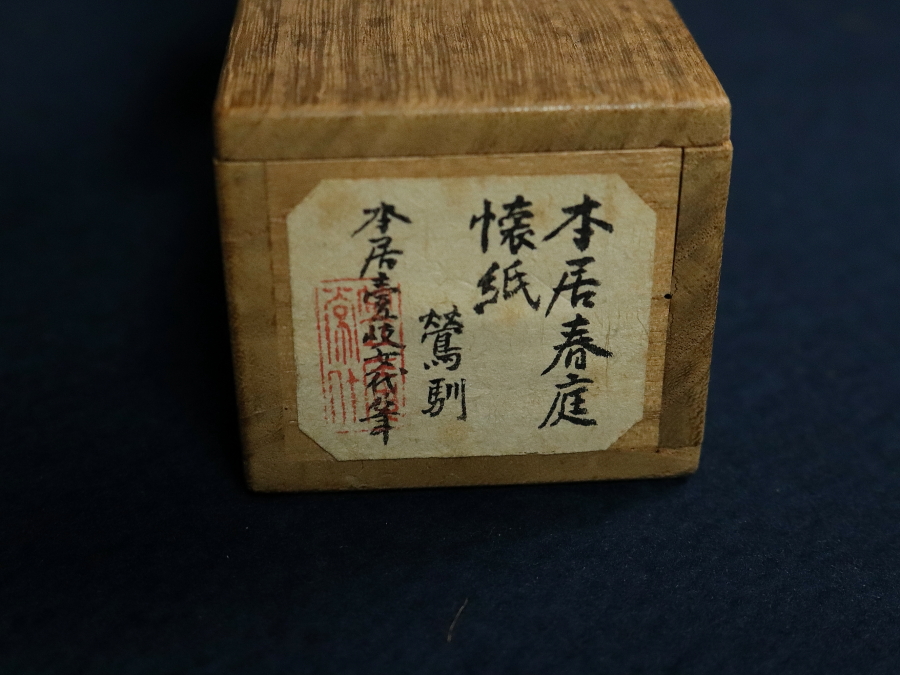 本居春庭
懐紙
鶯馴
本居壹岐女代筆